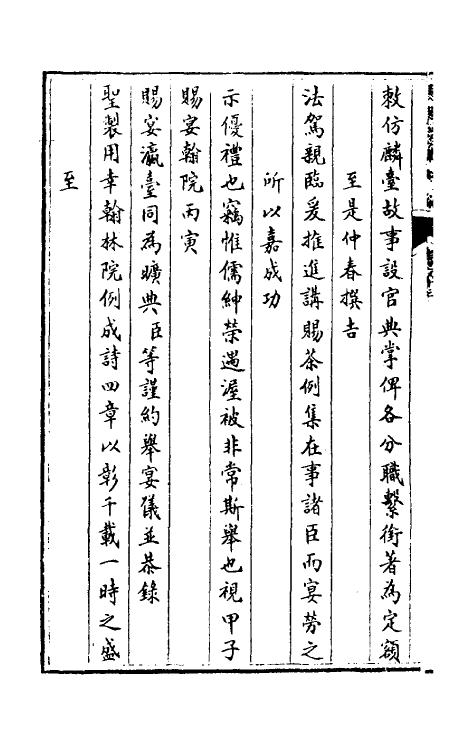 敕仿麟臺故事設官典掌俾各分職繫銜著為定額
至是仲春撰吉
法駕親臨爰推進講賜茶例集在事諸臣而宴勞之
所以嘉成功
示優禮也竊惟儒紳榮遇渥被非常斯舉也視甲子
賜宴翰院丙寅
賜宴瀛臺同為曠典臣等謹約舉宴儀並恭錄
聖製用幸翰林院例成詩四章以彰千載一時之盛
至